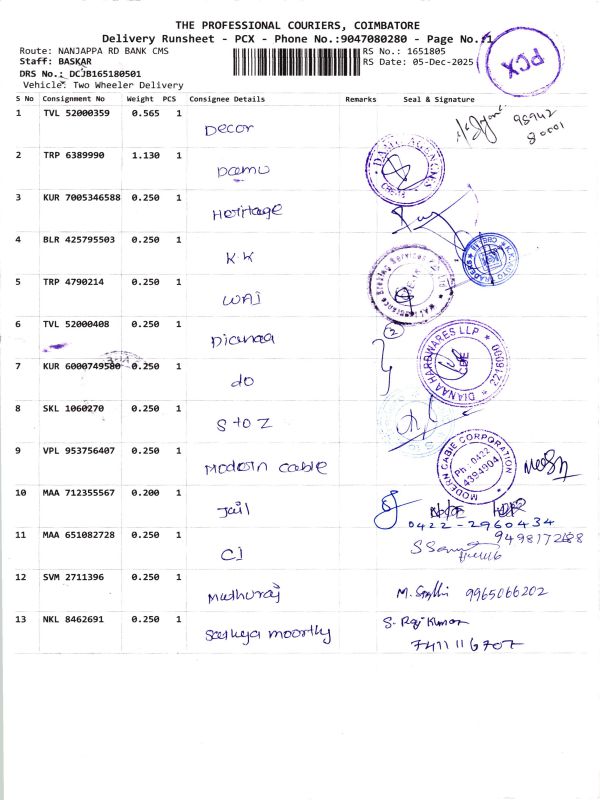 THE PROFESSIONAL COURIERS, COIMBATORE
Delivery Runsheet - PCX - Phone No.:9047080280 - Page No.:1
Route: NANJAPPA RD BANK CMS
RS No.: 1651805
Staff: BASKAR
RS Date: 05-Dec-2025
DRS No.: DCJB165180501
Vehicle: Two Wheeler Delivery
PCX
S No Consignment No Weight PCS Consignee Details Remarks Seal & Signature
1 TVL 52000359 0.565 1 Decor 98942
80001
2 TRP 6389990 1.130 1 Damu
3 KUR 7005346588 0.250 1 Heritage
4 BLR 425795503 0.250 1 KK
5 TRP 4790214 0.250 1 WAI
6 TVL 52000408 0.250 1 Dianaa
2
DIANAA HARDWARES LLP
CBE
7 KUR 6000749580 0.250 1 do
8 SKL 1060270 0.250 1 S to Z
9 VPL 953756407 0.250 1 Modern cable
MODERN CABLE CORPORATION
Ph: 0422
4394904
10 MAA 712355567 0.200 1 Jail
0422-2960434
11 MAA 651082728 0.250 1 CI
12 SVM 2711396 0.250 1 Muthuraj M. 9965066202
13 NKL 8462691 0.250 1 Sathya moorthy S. Raj Kumar
7411116707